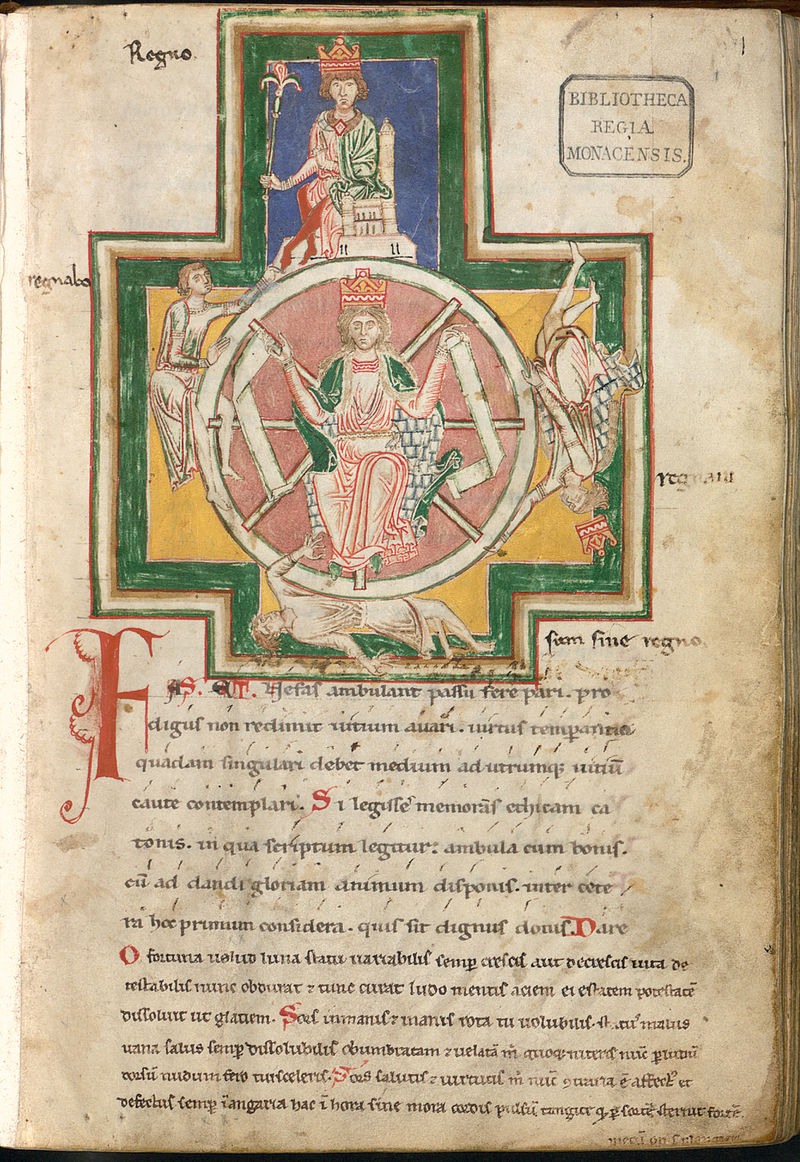 Regno.
1
BIBLIOTHECA
REGIA
MONACENSIS.
regnabo
regnaui
sum sine regno.
FAS. ET. Nefas ambulant passu fere pari. pro
digus non redimit uitium auari. uirtus temperantia
quadam singulari debet medium ad utrumque uitiū
caute contemplari. Si legisse memoras ethicam ca
tonis. in qua scriptum legitur: ambula cum bonis.
cū ad dandi gloriam animum disponis. inter cete
ra hoc primum considera. quis sit dignus donis. Dare
O fortuna uelud luna statu uariabilis semp crescis aut decrescis uita de
testabilis nunc obdurat ⁊ tunc curat ludo mentis aciem egestatem potestatē
dissoluit ut glaciem. Sors immanis ⁊ inanis rota tu uolubilis. status malus
uana salus semp dissolubilis obumbratam ⁊ uelatā m quoque niteris nūc p ludū
dorsū nudum fero tui sceleris. Sors salutis ⁊ uirtutis m nūc ꝯtraria ē affect et
defectus semp ī angaria hac ī hora sine mora cordis pulsū tangite qđ p sortē sternit fortē